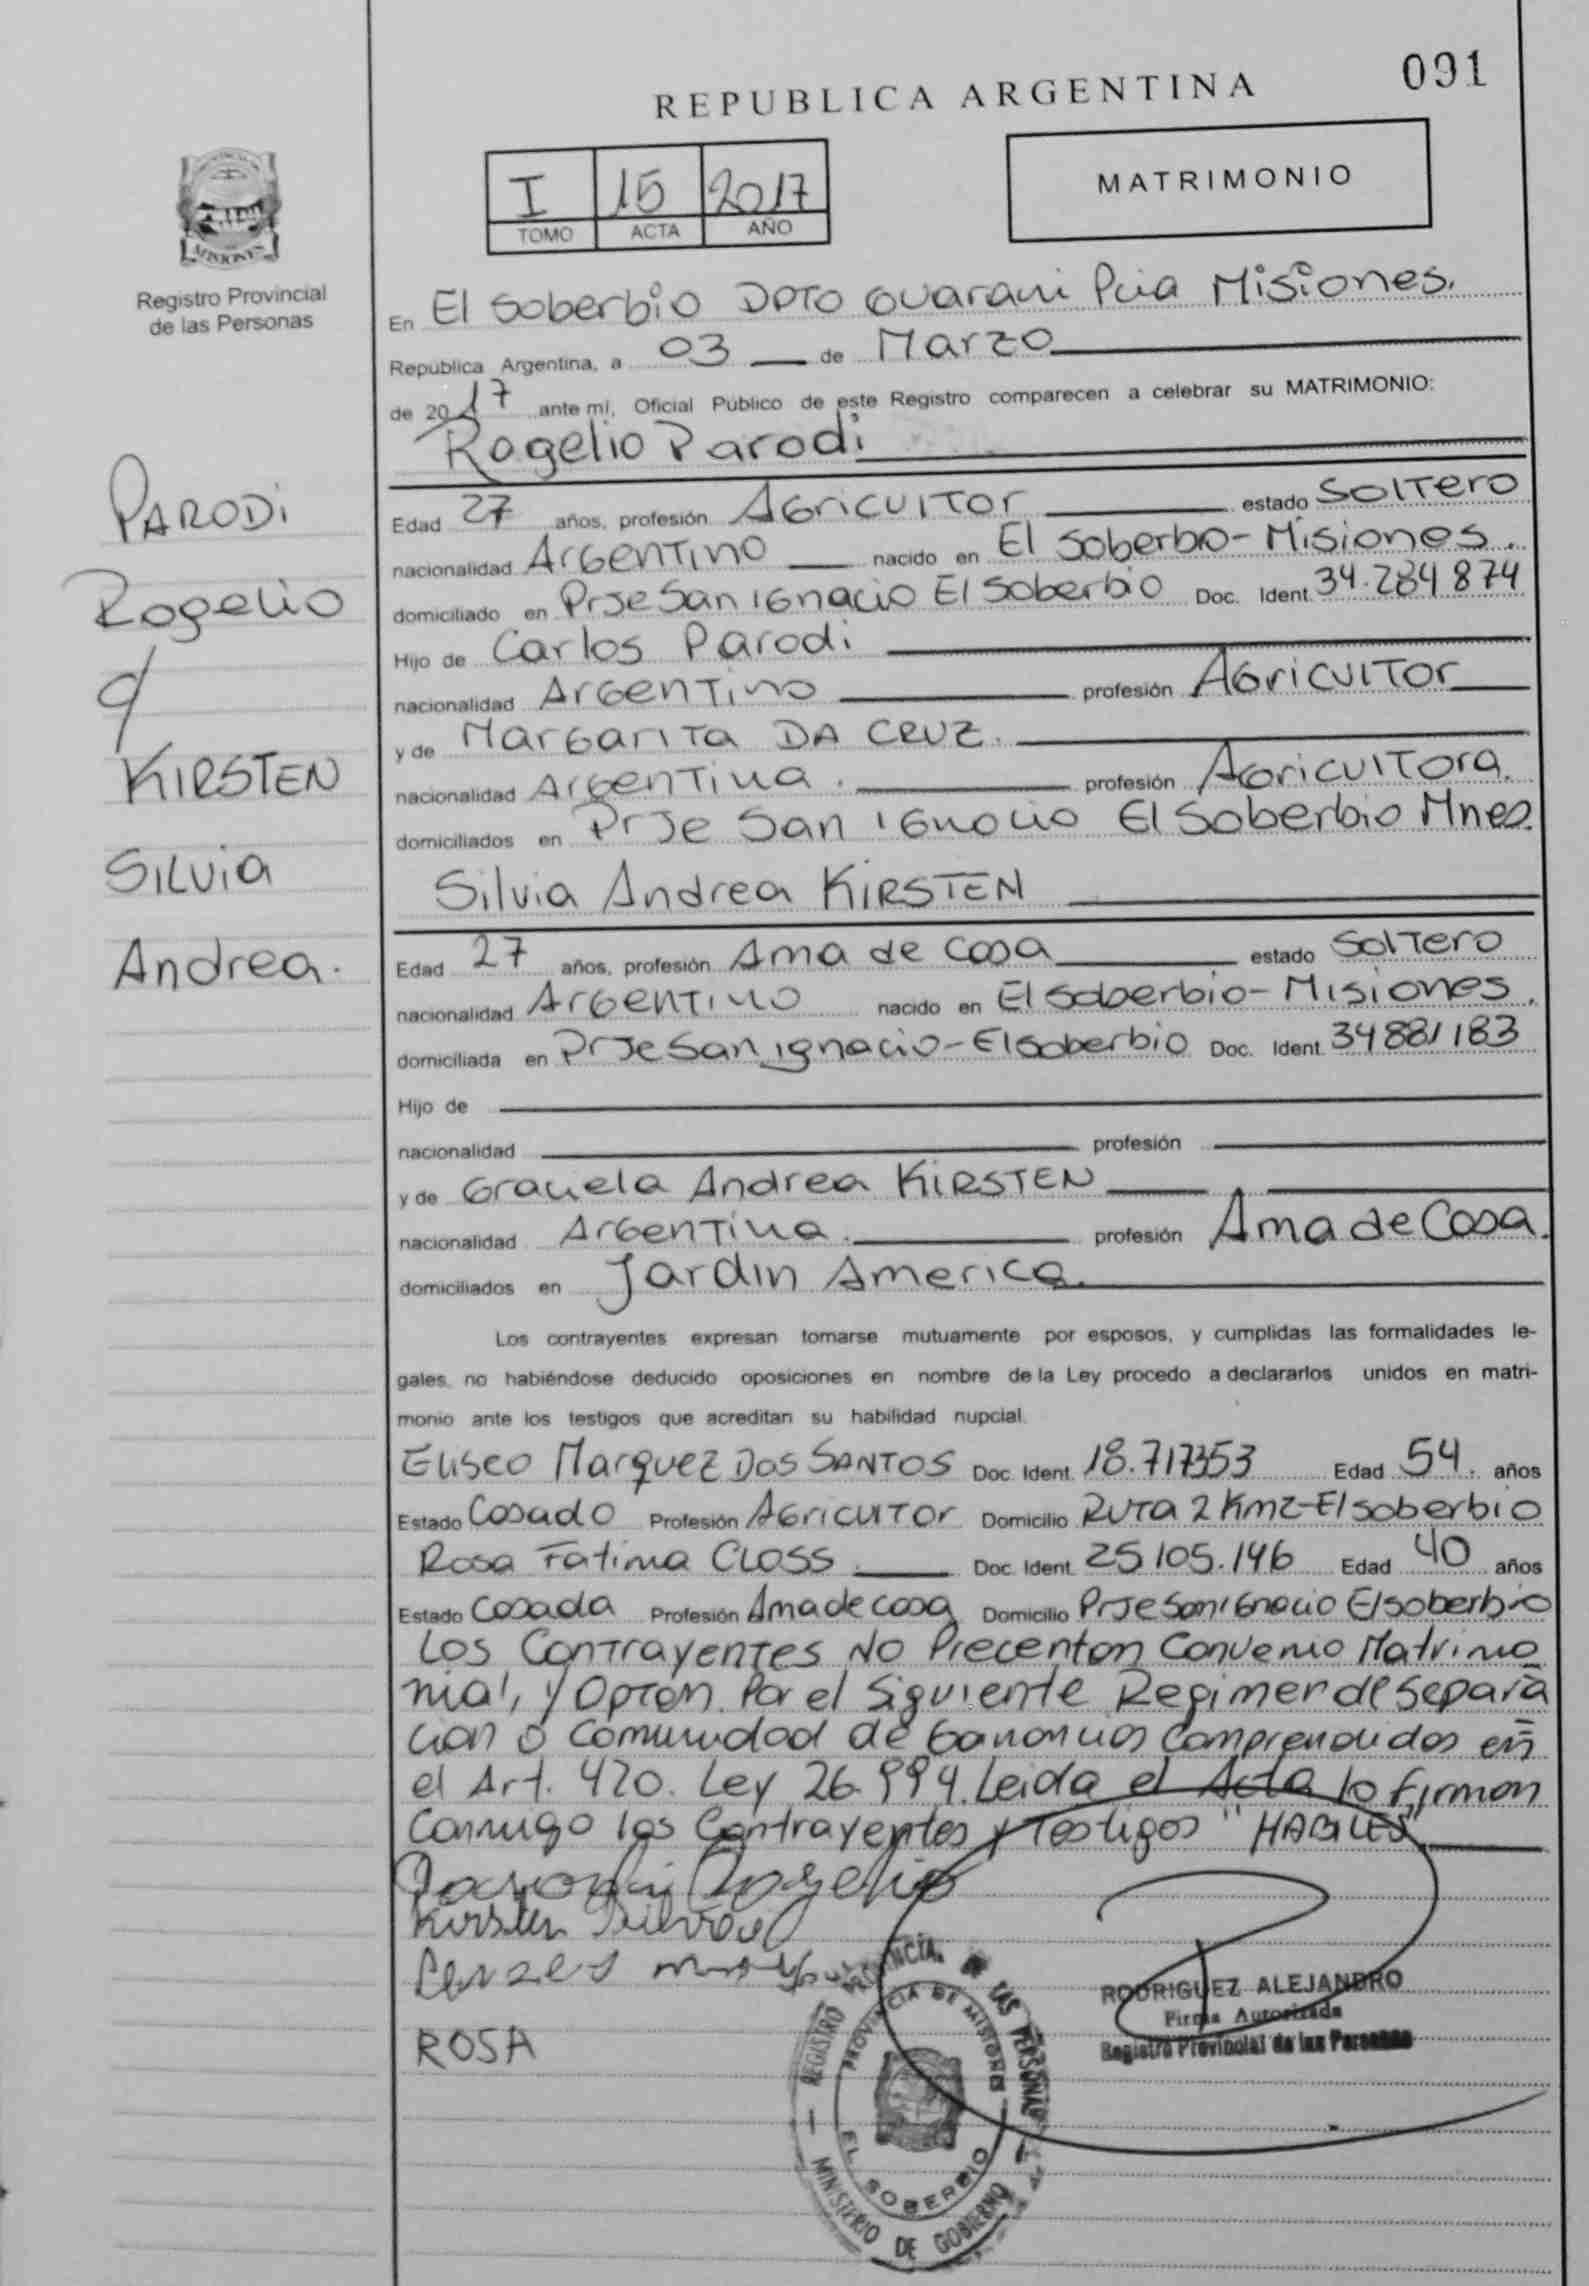 091
REPUBLICA ARGENTINA
I 15 2017
TOMO ACTA AÑO
MATRIMONIO
MISIONES
Registro Provincial
de las Personas
En El Soberbio DPTO Guarani Pcia Misiones.
República Argentina, a 03 de Marzo
de 2017 ante mí, Oficial Público de este Registro comparecen a celebrar su MATRIMONIO:
Rogelio Parodi
PARODi
Rogelio
c/
KIRSTEN
SILVia
Andrea.
Edad 27 años, profesión Agricultor estado Soltero
nacionalidad Argentino nacido en El Soberbio - Misiones.
domiciliado en Prje San Ignacio El Soberbio Doc. Ident. 34.284874
Hijo de Carlos Parodi
nacionalidad Argentino profesión Agricultor
y de Margarita DA CRUZ.
nacionalidad Argentina. profesión Agricultora.
domiciliados en Prje San Ignacio El Soberbio Mnes.
Silvia Andrea KIRSTEN
Edad 27 años, profesión Ama de casa estado Soltero
nacionalidad Argentino nacido en El Soberbio - Misiones.
domiciliada en Prje San ignacio - El Soberbio Doc. Ident. 34881183
Hijo de
nacionalidad profesión
y de Graciela Andrea KIRSTEN
nacionalidad Argentina. profesión Ama de Casa.
domiciliados en Jardin America.
Los contrayentes expresan tomarse mutuamente por esposos, y cumplidas las formalidades le-
gales, no habiéndose deducido oposiciones en nombre de la Ley procedo a declararlos unidos en matri-
monio ante los testigos que acreditan su habilidad nupcial.
Eliseo Marquez DOS SANTOS Doc. Ident. 18.717353 Edad 54. años
Estado Casado Profesión Agricultor Domicilio RUTA 2 Km2 - El Soberbio
Rosa Fatima CLOSS Doc. Ident. 25105.146 Edad 40 años
Estado Casada Profesión Ama de casa Domicilio Prje San Ignacio El Soberbio
Los Contrayentes No Precentan Convenio Matrimo
nial, y Optan Por el Siguiente Regimen de Separa
cion o Comunidad de Ganancias Comprendidos en
el Art. 420. Ley 26.994. Leida el Acta lo firman
Conmigo los Contrayentes y Testigos "HABILES"
Parodi Rogelio
Kirsten Silvia
ROSA
REGISTRO PROVINCIAL DE LAS PERSONAS
PROVINCIA DE MISIONES
EL SOBERBIO
MINISTERIO DE GOBIERNO
RODRIGUEZ ALEJANDRO
Firma Autorizada
Registro Provincial de las Personas